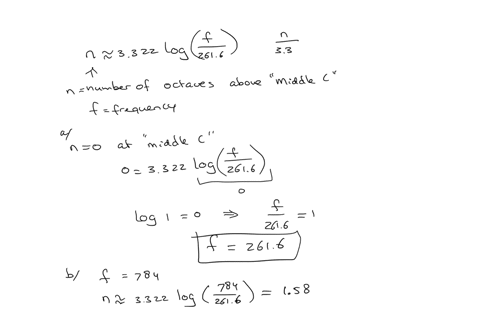 n ≈ 3.322 log(f/261.6) n/3.3
↑
n = number of octaves above "middle C"
f = frequency
a/
n = 0 at "middle C"
0 = 3.322 log(f/261.6)
0
log 1 = 0 ⇒ f/261.6 = 1
f = 261.6
b/ f = 784
n ≈ 3.322 log(784/261.6) = 1.58